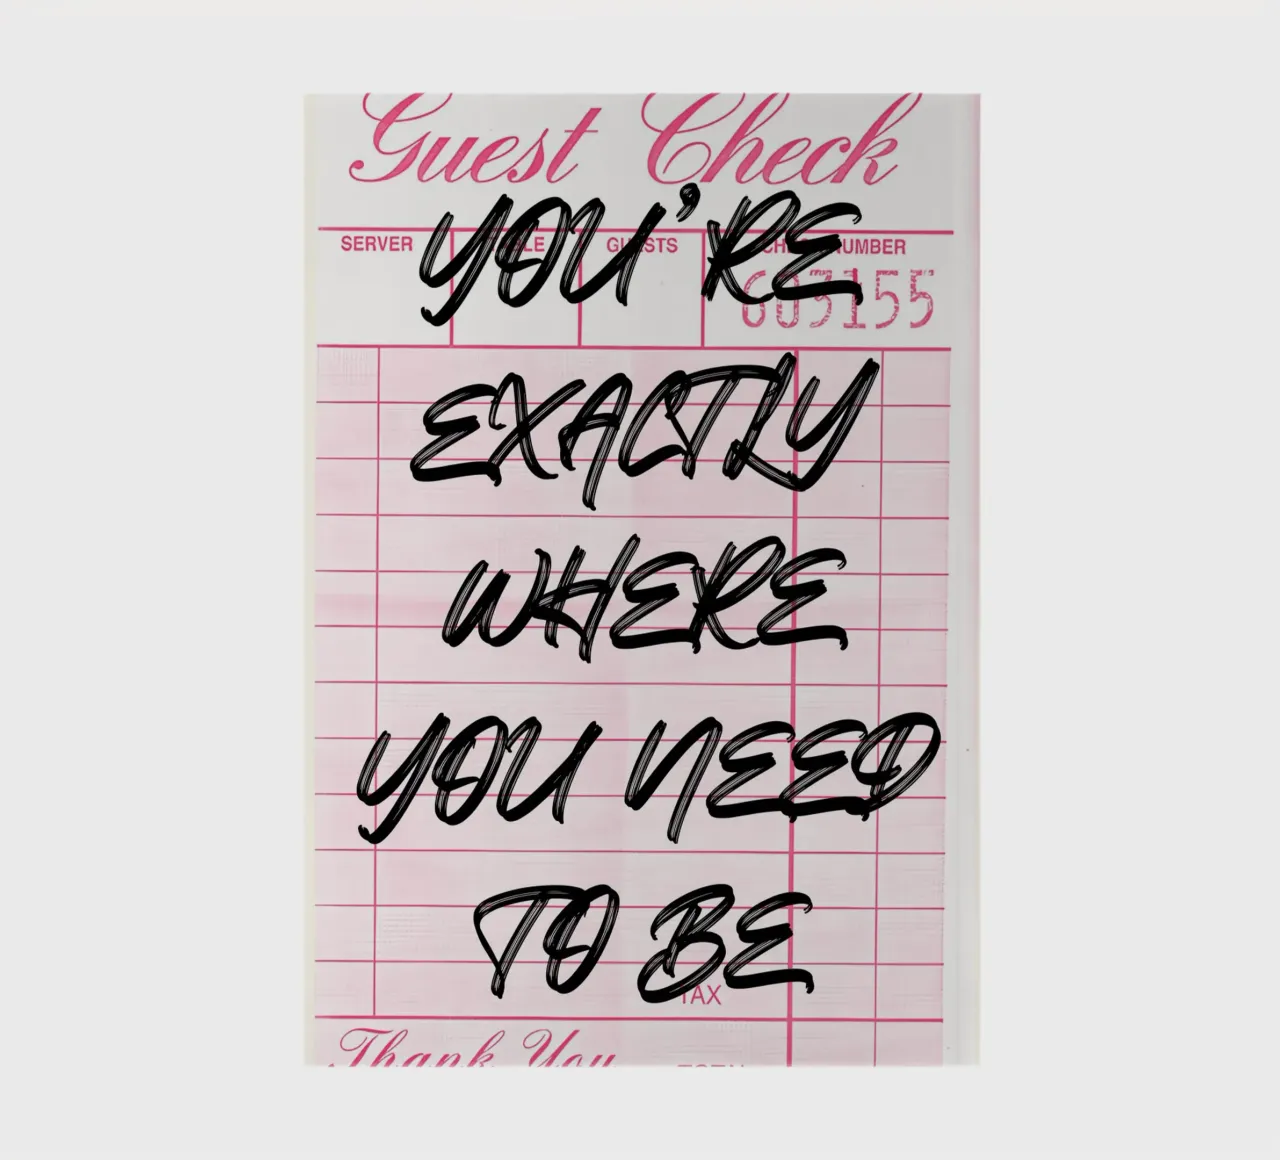 Guest Check
YOU'RE
SERVER GUESTS NUMBER
603155
EXACTLY
WHERE
YOU NEED
TO BE
TAX
Thank You